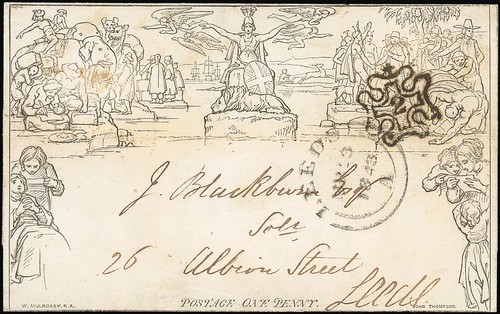 J. Blackburn Esq
Solr
26 Albion Street
Leeds
POSTAGE ONE PENNY.
W. MULREADY. R.A.
JOHN THOMPSON.